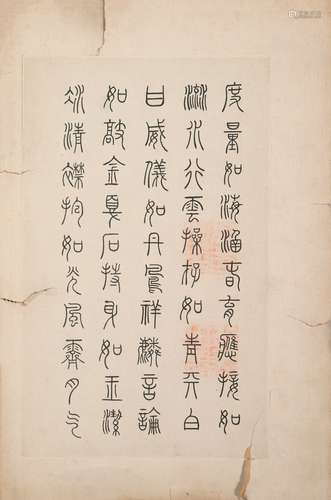 度量如海涵春育應接如
流水行雲操存如青天白
日威儀如丹鳳祥麟言論
如敲金戛石持身如玉潔
冰清襟抱如光風霽月气